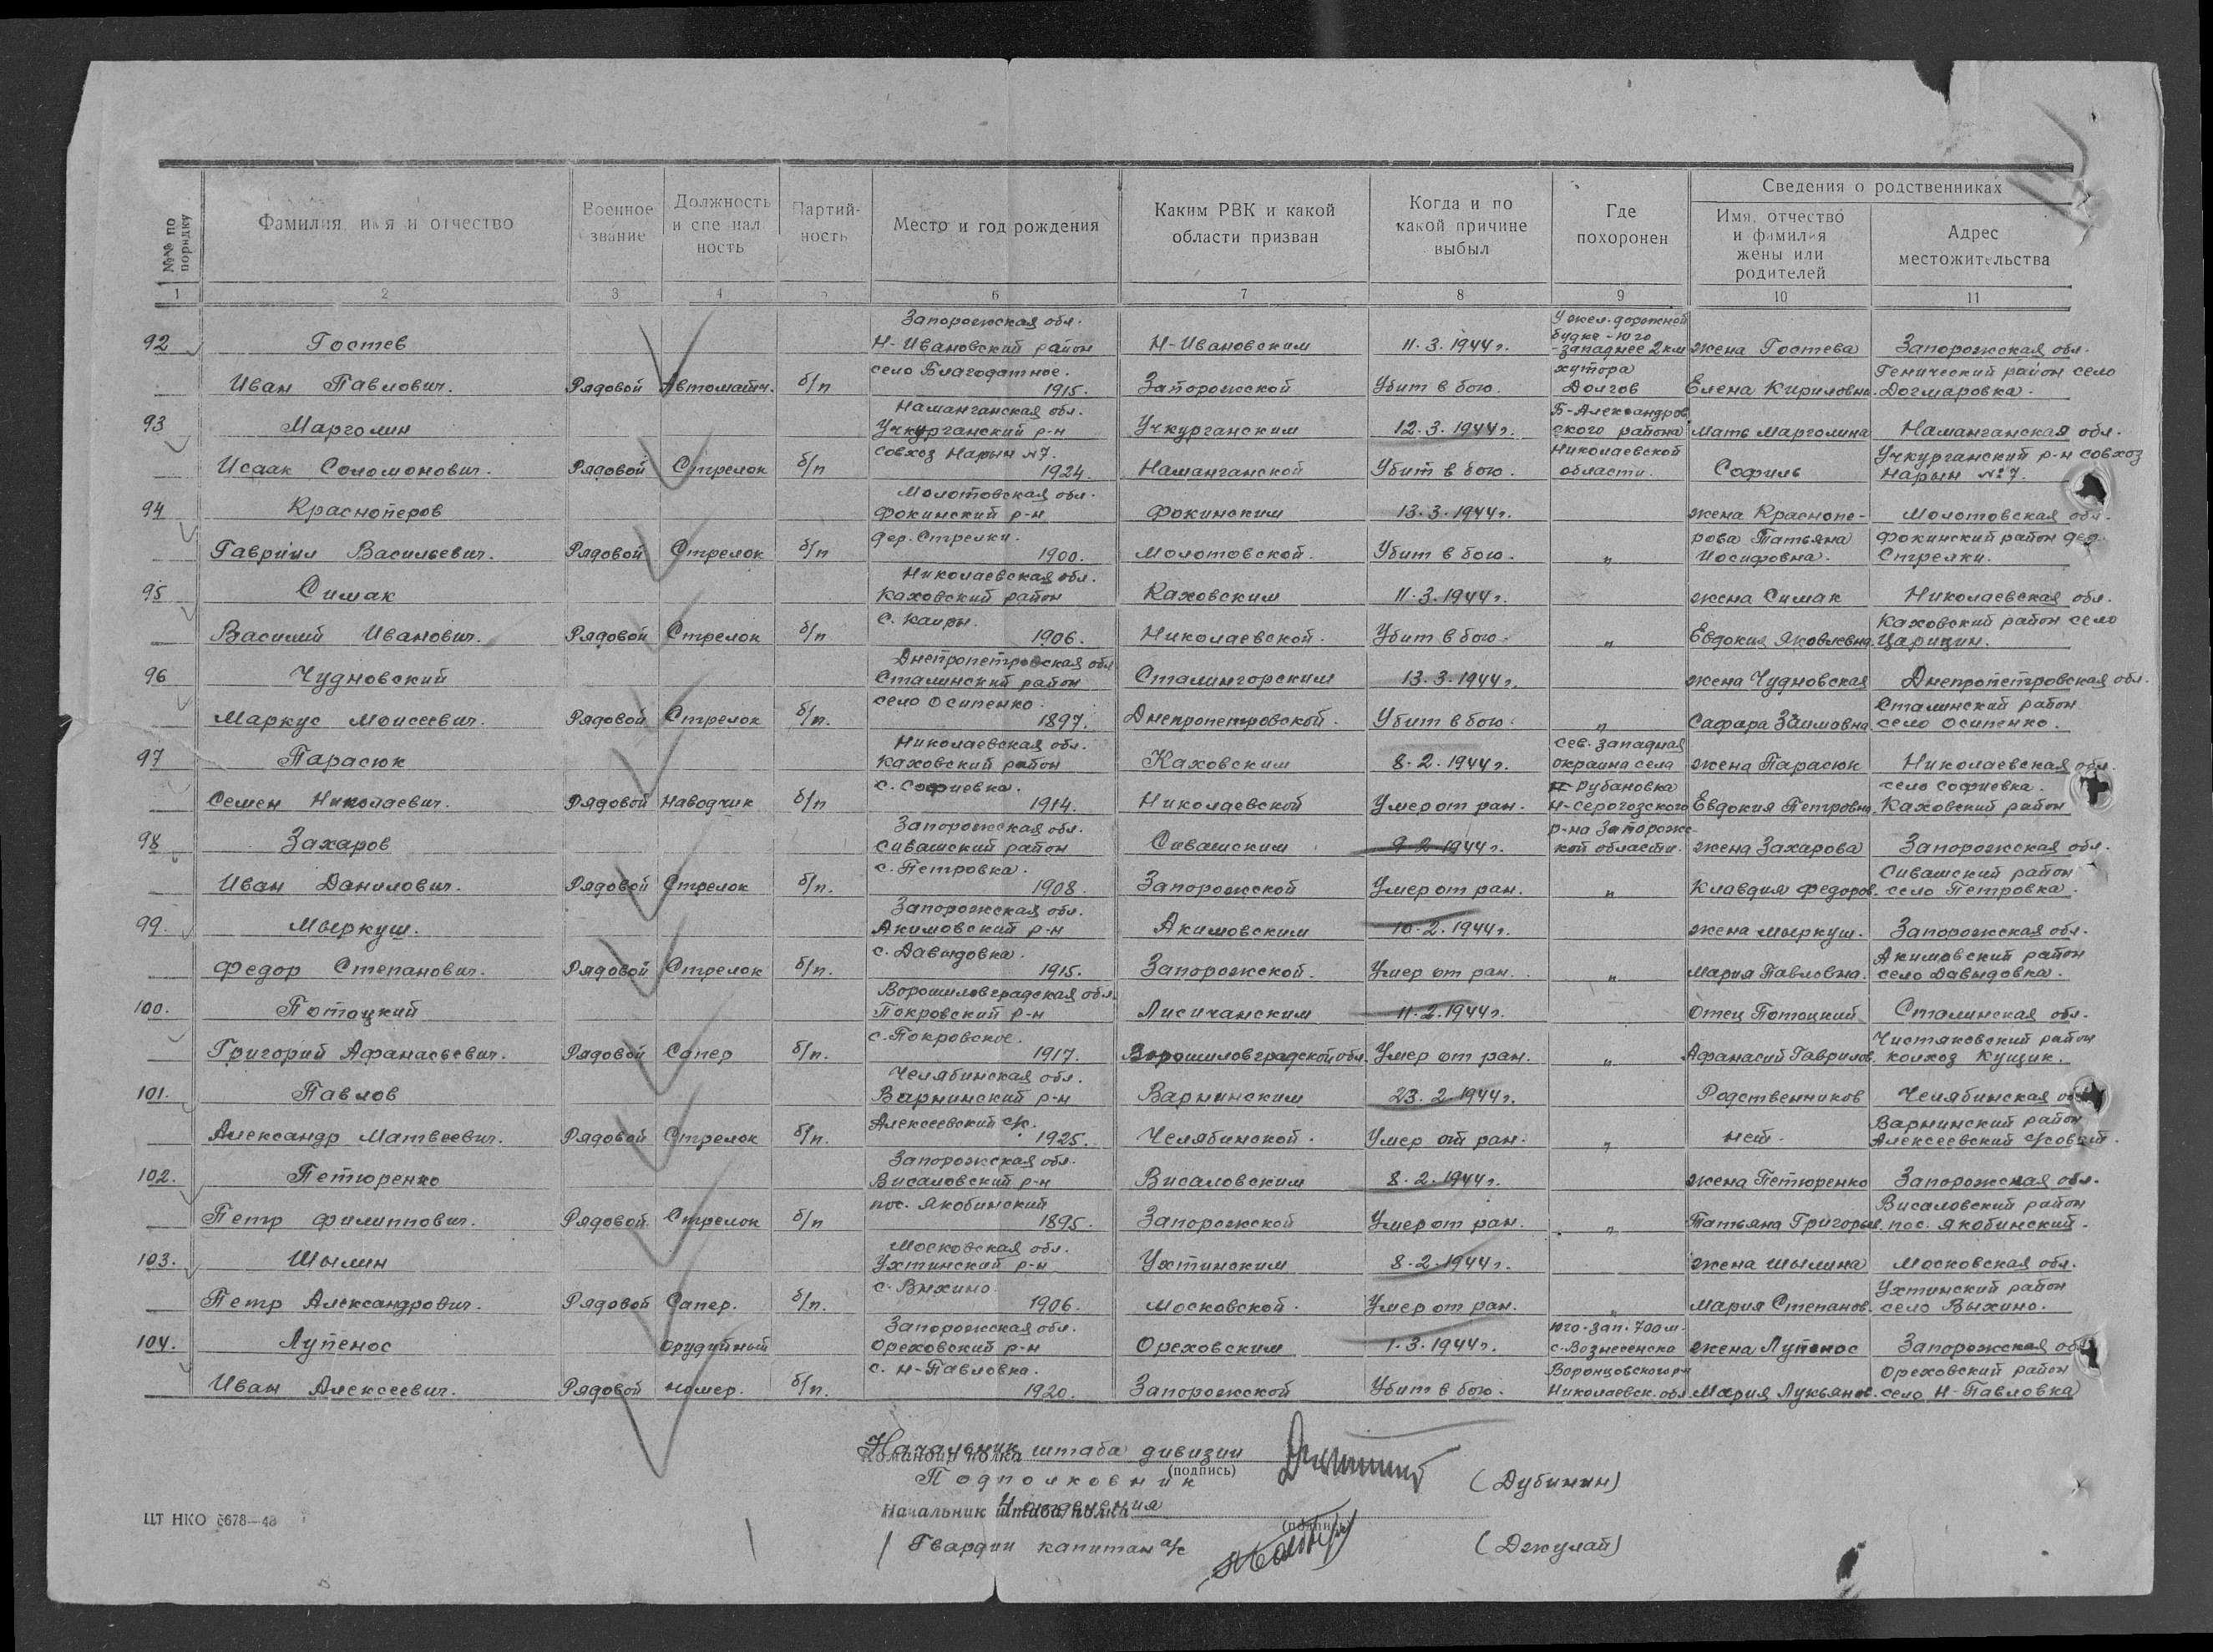 №№ по порядку
Фамилия, имя и отчество
Военное звание
Должность и специальность
Партийность
Место и год рождения
Каким РВК и какой области призван
Когда и по какой причине выбыл
Где похоронен
Сведения о родственниках
Имя, отчество и фамилия жены или родителей
Адрес местожительства
1 2 3 4 5 6 7 8 9 10 11
Запорожская обл. У жел. дорожной
92 Гостев Н-Ивановский район Н-Ивановским 11.3.1944г. будке-юго-западнее 2км жена Гостева Запорожская обл.
село Благодатное. хутора Генический район село
Иван Павлович. Рядовой Автоматч. б/п 1915. Запорожской Убит в бою. Долгов Елена Кириловна. Догмаровка.
Наманганская обл. Б-Александров
93 Марголин Учкурганский р-н Учкурганским 12.3.1944г. ского района Мать Марголина Наманганская обл.
совхоз Нарын №7. Николаевской Учкурганский р-н совхоз
Исаак Соломонович. Рядовой Стрелок б/п 1924. Наманганской Убит в бою. области. Софиль Нарын №7.
Молотовская обл.
94 Красноперов Фокинский р-н Фокинским 13.3.1944г. жена Краснопе- Молотовская обл.
дер. Стрелки. рова Татьяна Фокинский район дер.
Гавриил Васильевич. Рядовой Стрелок б/п 1900. Молотовской. Убит в бою. " Иосифовна. Стрелки.
Николаевская обл.
95 Симак Каховский район Каховским 11.3.1944г. жена Симак Николаевская обл.
с. Каиры. Каховский район село
Василий Иванович. Рядовой Стрелок б/п 1906. Николаевской. Убит в бою. " Евдокия Яковлевна. Царицин.
Днепропетровская обл.
96 Чудновский Сталинский район Сталингорским 13.3.1944г. жена Чудновская Днепропетровская обл.
село Осипенко. Сталинский район
Маркус Моисеевич. Рядовой Стрелок б/п. 1897. Днепропетровской. Убит в бою. " Сафара Заимовна село Осипенко.
Николаевская обл. сев. западная
97 Парасюк Каховский район Каховским 8.2.1944г. окраина села жена Парасюк Николаевская обл.
с. Софиевка. Рубановка село Софиевка.
Семен Николаевич. Рядовой Наводчик б/п 1914. Николаевской Умер от ран. Н-Серогозского Евдокия Петровна. Каховский район
Запорожская обл. р-на Запорожс-
98 Захаров Сивашский район Сивашским 9.2.1944г. кой области. жена Захарова Запорожская обл.
с. Петровка. Сивашский район
Иван Данилович. Рядовой Стрелок б/п. 1908. Запорожской Умер от ран. " Клавдия Федоров. село Петровка.
Запорожская обл.
99. Мыркуш. Акимовский р-н Акимовским 10.2.1944г. жена Мыркуш. Запорожская обл.
с. Давыдовка. Акимовский район
Федор Степанович. Рядовой Стрелок б/п. 1915. Запорожской. Умер от ран. " Мария Павловна. село Давыдовка.
Ворошиловградская обл.
100. Потоцкий Покровский р-н Лисичанским 11.2.1944г. Отец Потоцкий Сталинская обл.
с. Покровское. Чистяковский район
Григорий Афанасьевич. Рядовой Сапер б/п. 1917. Ворошиловградской обл. Умер от ран. " Афанасий Гаврилов. колхоз Кущик.
Челябинская обл.
101. Павлов Варнинский р-н Варнинским 23.2.1944г. Родственников Челябинская обл.
Алексеевский с/с. Варнинский район
Александр Матвеевич. Рядовой Стрелок б/п. 1925. Челябинской. Умер от ран. " нет. Алексеевский с/совет.
Запорожская обл.
102. Петюренко Висаловский р-н Висаловским 8.2.1944г. жена Петюренко Запорожская обл.
пос. Якобинский Висаловский район
Петр Филиппович. Рядовой Стрелок б/п 1895. Запорожской Умер от ран. " Татьяна Григорьев. пос. Якобинский.
Московская обл.
103. Шылин Ухтинский р-н Ухтинским 8.2.1944г. жена Шылина Московская обл.
с. Выхино. Ухтинский район
Петр Александрович. Рядовой Сапер. б/п. 1906. Московской. Умер от ран. " Мария Степанов. село Выхино.
Запорожская обл. юго-зап. 700м.
104. Лупенос Орудийный Ореховский р-н Ореховским 1.3.1944г. с. Вознесенска жена Лупенос Запорожская обл.
с. Н-Павловка. Воронцовского р-н Ореховский район
Иван Алексеевич. Рядовой номер. б/п. 1920. Запорожской Убит в бою. Николаевск. обл. Мария Лукьянов. село Н-Павловка
Начальник штаба дивизии
Командир полка
Подполковник (подпись) (Дубинин)
Начальник штаба полка
отделения
(подпись)
Гвардии капитан а/с (Джулай)
ЦТ НКО 6678—43